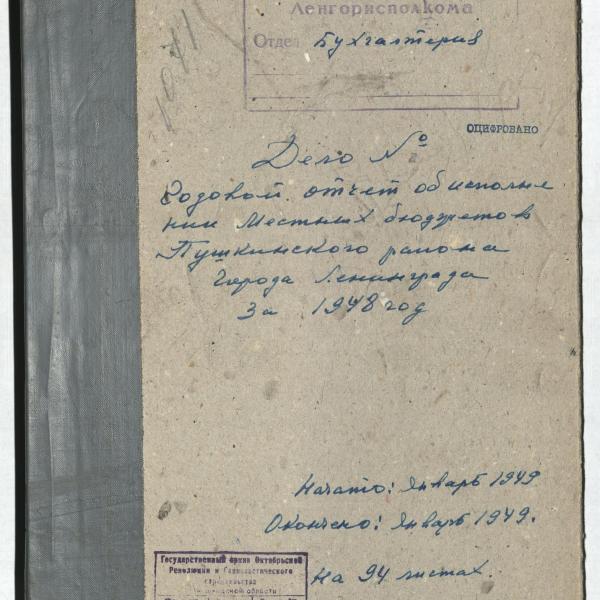 Ленгорисполкома
Отдел Бухгалтерия
1071
ОЦИФРОВАНО
Дело №
Годовой отчет об исполне
нии Местных бюджетов
Пушкинского района
Города Ленинграда
За 1948 год
Начато: Январь 1949
Окончено: Январь 1949.
На 94 листах.
Государственный архив Октябрьской
Революции и Социалистического
строительства
Ленинградской области